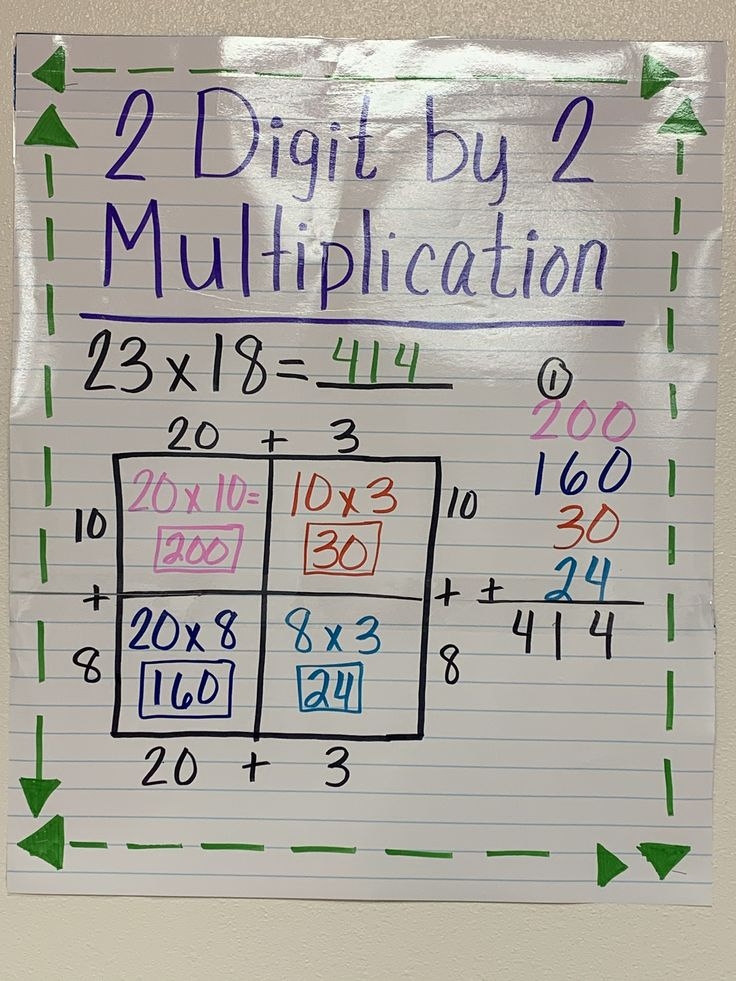 2 Digit by 2
Multiplication
23 x 18 = 414
20 + 3
10
+
8
20 x 10 =
200
10 x 3
30
20 x 8
160
8 x 3
24
10
+
8
20 + 3
1
200
160
30
+ 24
414